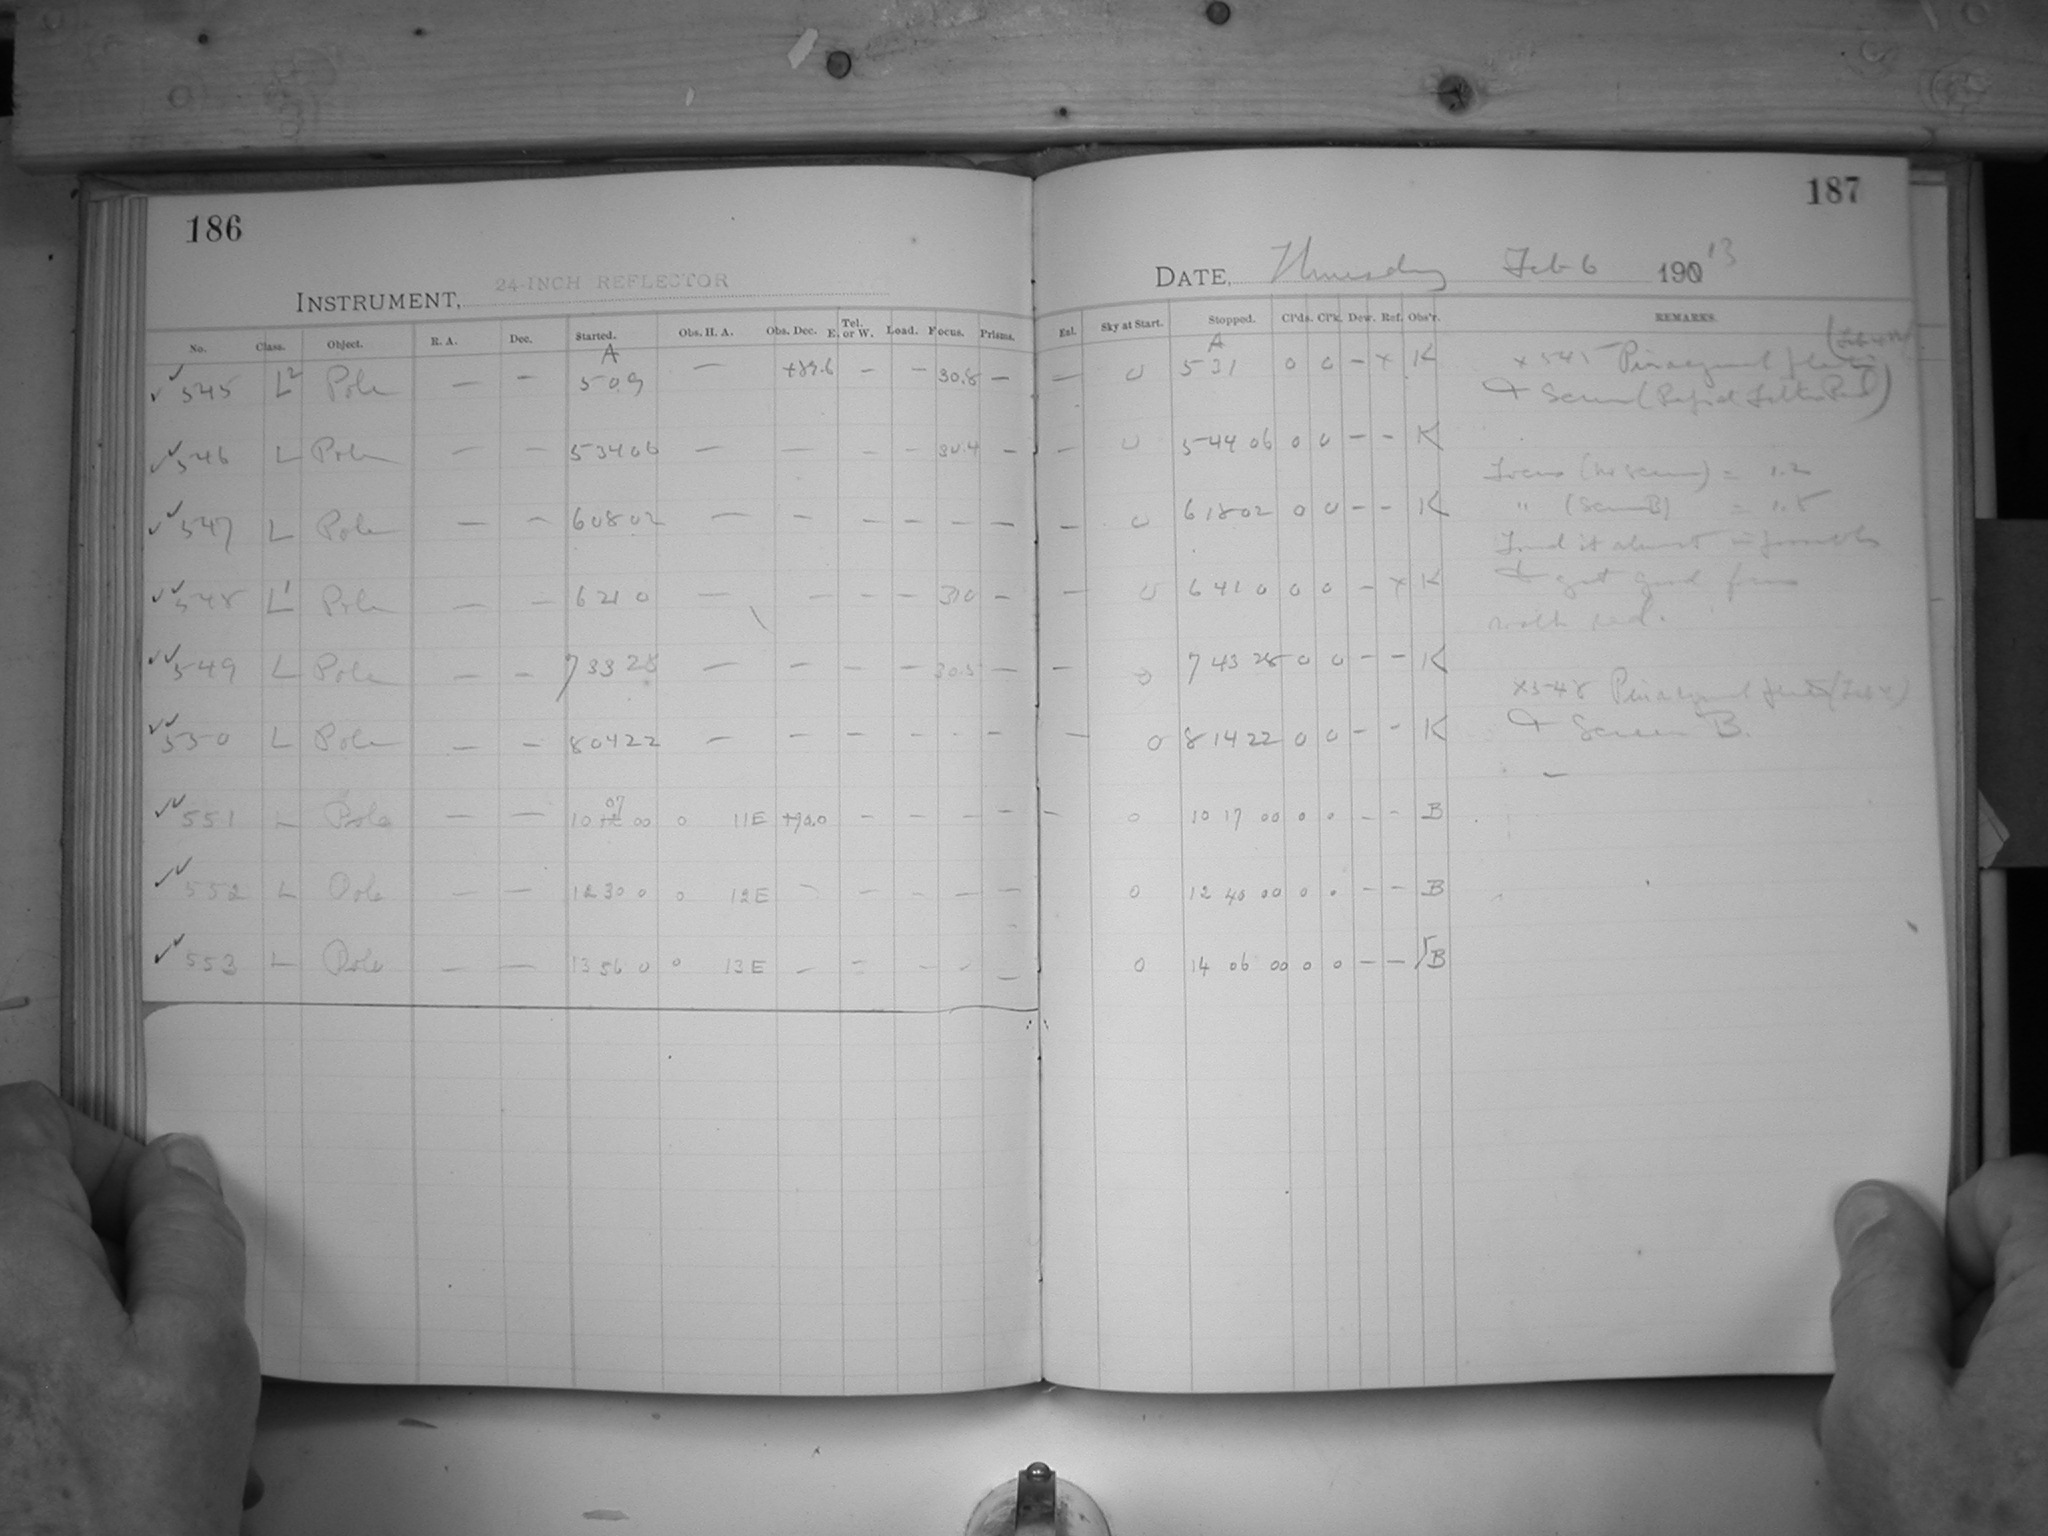 186
INSTRUMENT, 24-INCH REFLECTOR
No. Class. Object. R. A. Dec. Started. Obs. H. A. Obs. Dec. Tel. E. or W. Load. Focus. Prisms.
A
✓✓ 545 L2 Pole — — 5 09 — +89.6 — — 30.8 —
✓✓ 546 L Pole — — 5 34 06 — — — — 30.4 —
✓✓ 547 L Pole — — 6 08 02 — — — — — —
✓✓ 548 L1 Pole — — 6 21 0 — — — — 31.0 —
✓✓ 549 L Pole — — 7 33 28 — — — — 30.5 —
✓✓ 550 L Pole — — 8 04 22 — — — — — —
✓✓ 551 L Pole — — 10 07 00 0 11E +90.0 — — — —
✓✓ 552 L Pole — — 12 30 0 0 12E — — — —
✓✓ 553 L Pole — — 13 56 0 0 13E — — — — —
187
DATE, Thursday Feb 6 1913
Enl. Sky at Start. Stopped. Cl'ds. Cl'k. Dew. Ref. Obs'r. REMARKS.
A
— 0 5 31 0 0 — x K x 545 Pinacynol plate
+ Screen (Rapid Filter Red)
— 0 5 44 06 0 0 — — K
Focus (no screen) = 1.2
— 0 6 18 02 0 0 — — K " (Screen B) = 1.5
Find it almost impossible
— 0 6 41 0 0 0 — x K to get good focus
with red.
— 0 7 43 28 0 0 — — K
x 548 Pinacynol plate
— 0 8 14 22 0 0 — — K + Screen B.
— 0 10 17 00 0 0 — — B
0 12 40 00 0 0 — — B
0 14 06 00 0 0 — — B